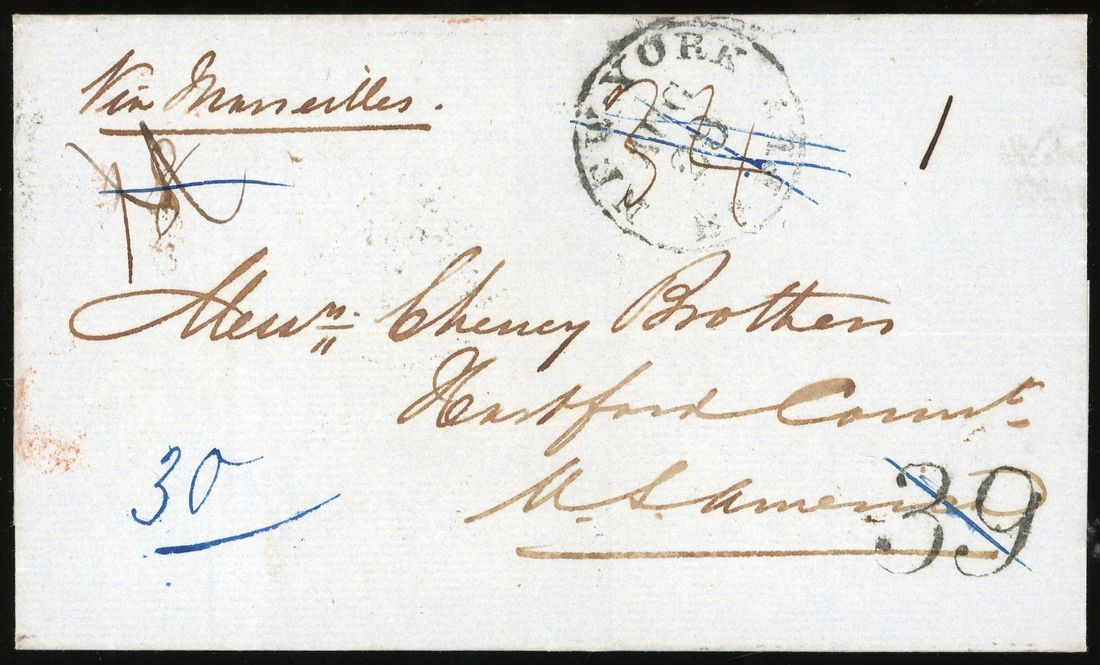 Via Marseilles.
NEW YORK
AUG
34
1
Messrs. Cheney Brothers
Hartford Connt.
U.S. America
39
30